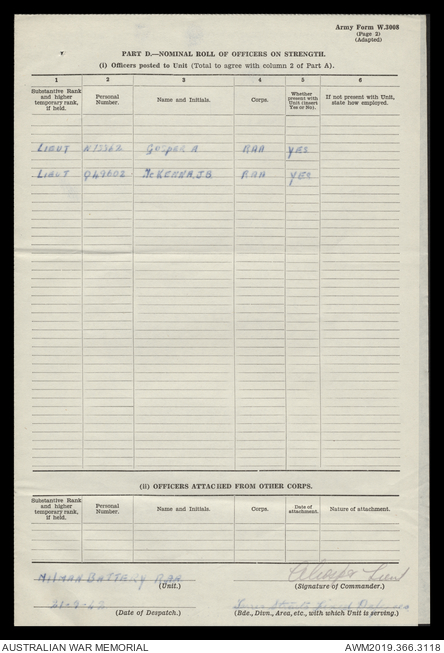 Army Form W.3008
(Page 2)
(Adapted)
PART D.—NOMINAL ROLL OF OFFICERS ON STRENGTH.
(i) Officers posted to Unit (Total to agree with column 2 of Part A).
1 2 3 4 5 6
Substantive Rank and higher temporary rank, if held. Personal Number. Name and Initials. Corps. Whether present with Unit (insert Yes or No). If not present with Unit, state how employed.
LIEUT GOSPER A RAA YES
LIEUT McKENNA J.B RAA YES
(ii) OFFICERS ATTACHED FROM OTHER CORPS.
Substantive Rank and higher temporary rank, if held. Personal Number. Name and Initials. Corps. Date of attachment. Nature of attachment.
BATTERY RAA Lieut
(Unit.) (Signature of Commander.)
(Date of Despatch.) (Bde., Divn., Area, etc., with which Unit is serving.)
AUSTRALIAN WAR MEMORIAL AWM2019.366.3118